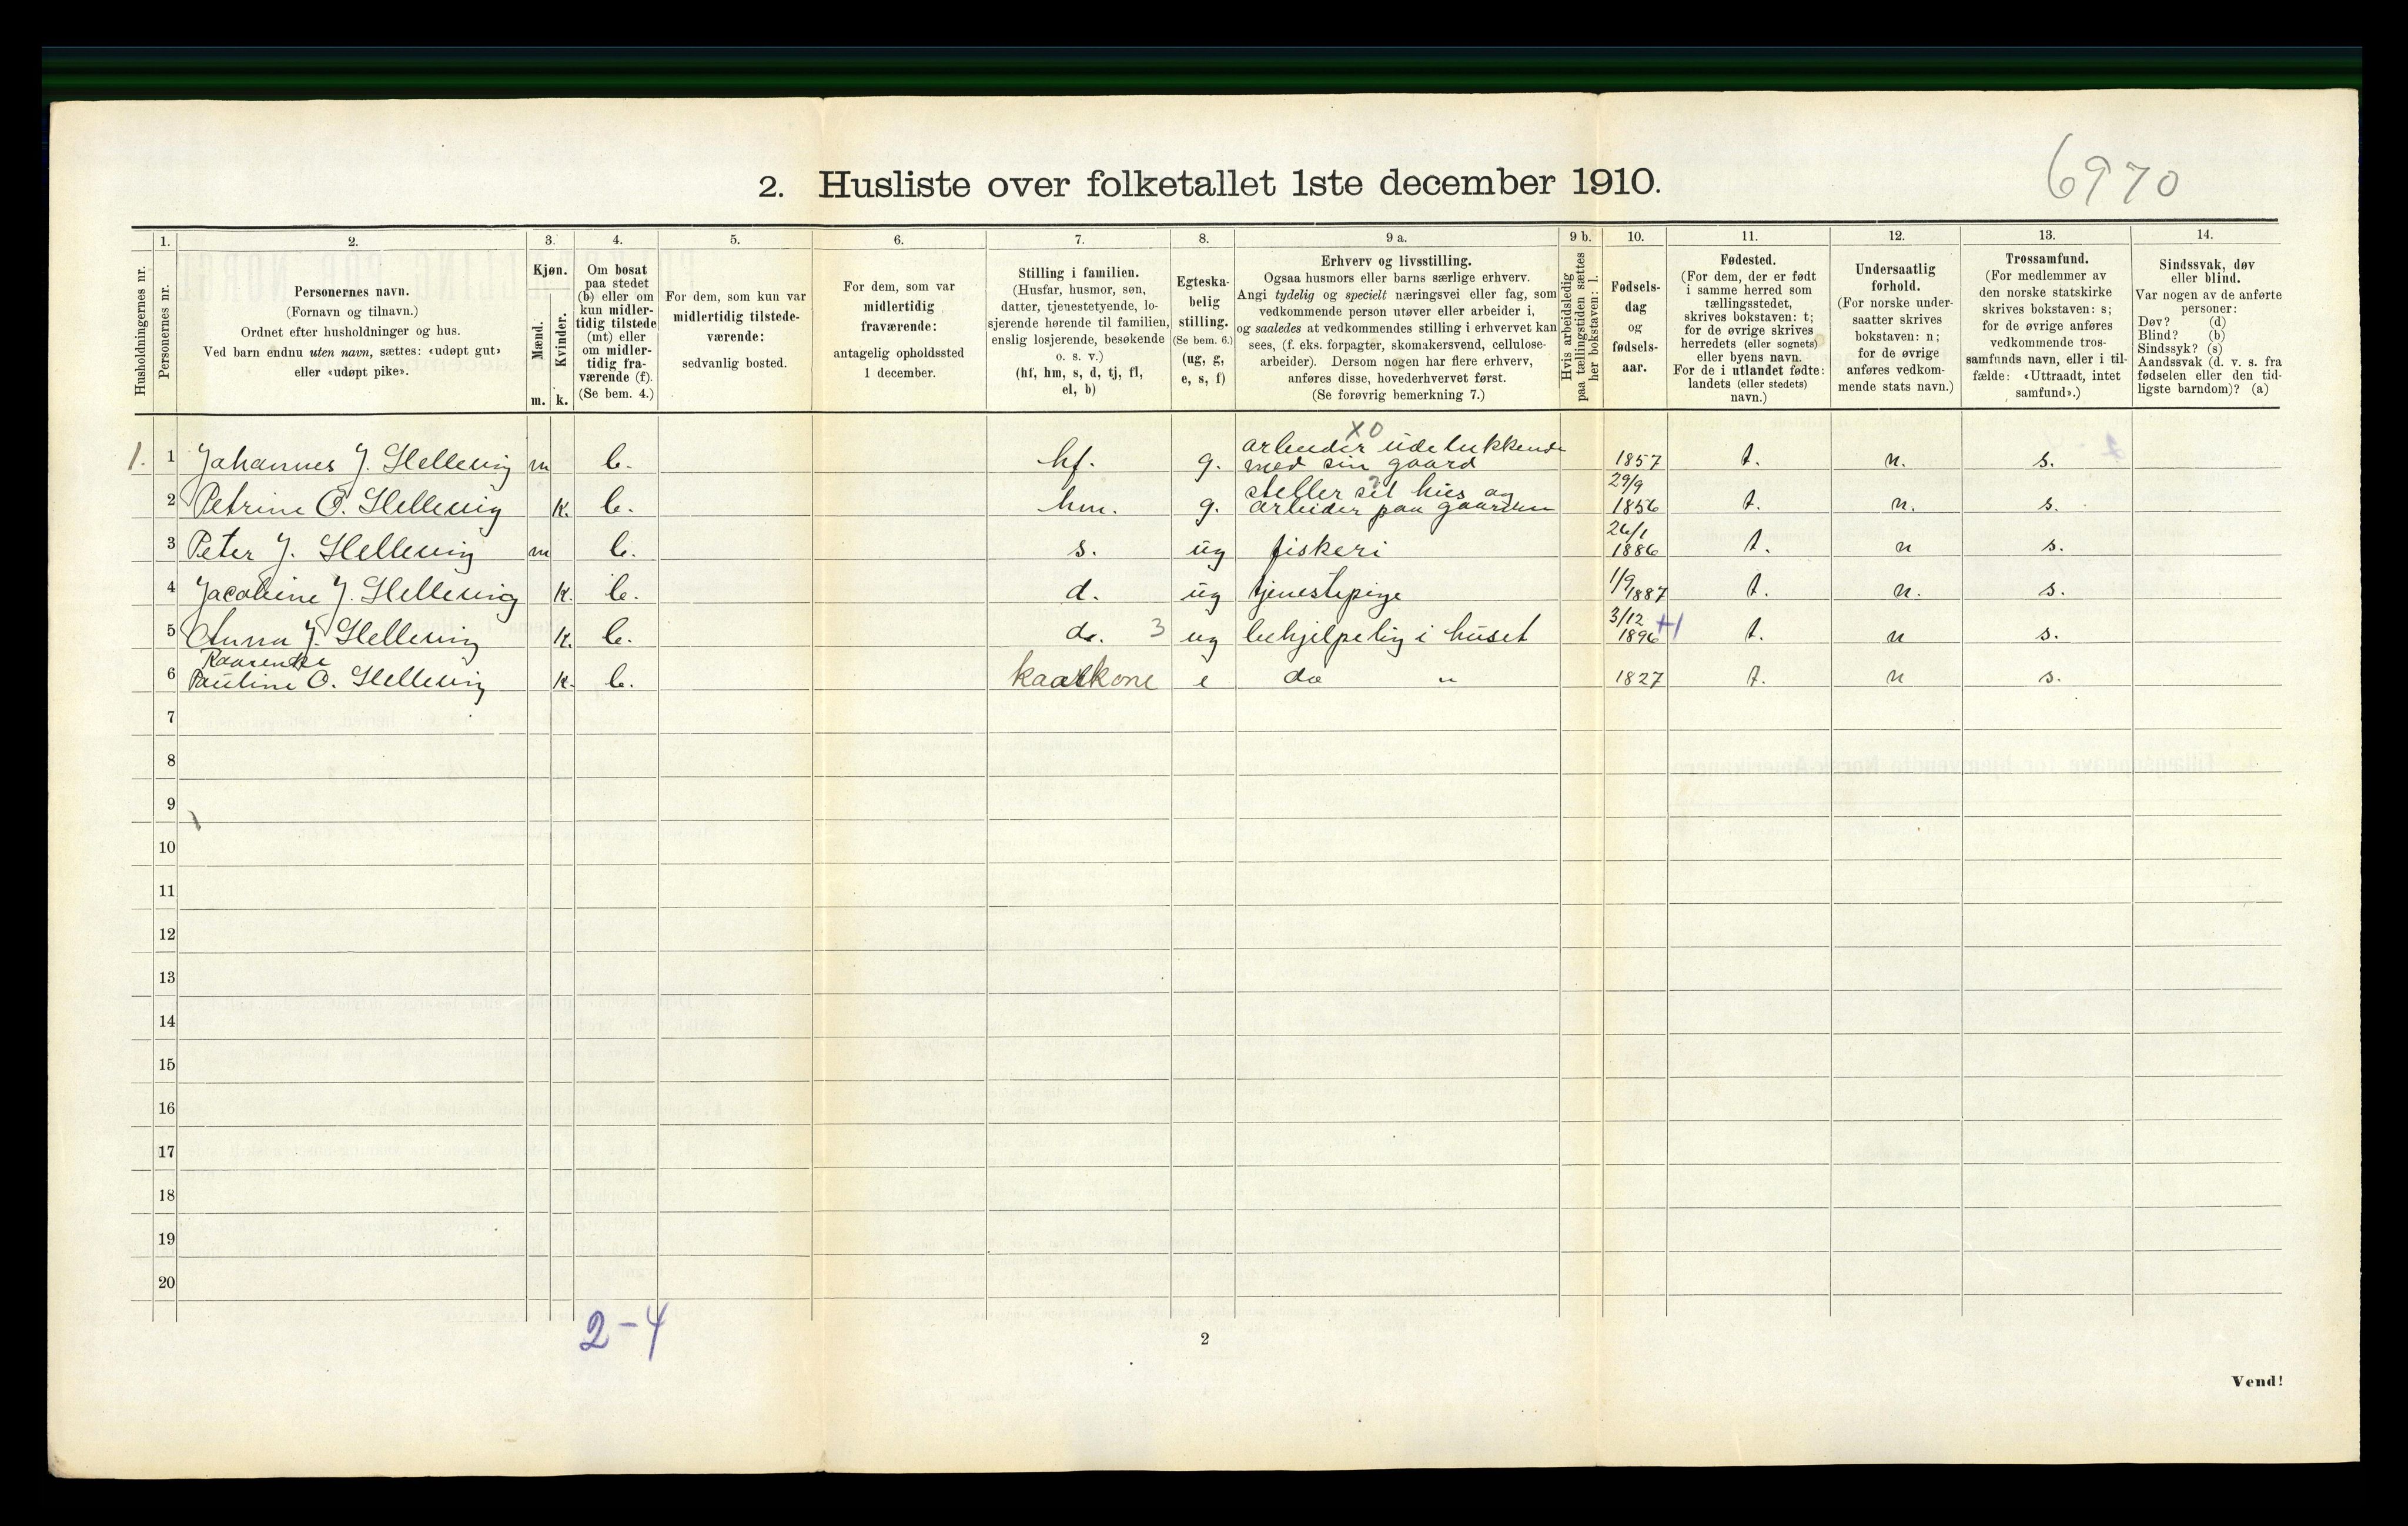 6970
2. Husliste over folketallet 1ste december 1910.
Husholdningernes nr.
1.
Personernes nr.
2.
Personernes navn.
(Fornavn og tilnavn.)
Ordnet efter husholdninger og hus.
Ved barn endnu uten navn, sættes: «udøpt gut»
eller «udøpt pike».
3.
Kjøn.
Mænd.
Kvinder.
m. k.
4.
Om bosat
paa stedet
(b) eller om
kun midler-
tidig tilstede
(mt) eller
om midler-
tidig fra-
værende (f).
(Se bem. 4.)
5.
For dem, som kun var
midlertidig tilstede-
værende:
sedvanlig bosted.
6.
For dem, som var
midlertidig
fraværende:
antagelig opholdssted
1 december.
7.
Stilling i familien.
(Husfar, husmor, søn,
datter, tjenestetyende, lo-
sjerende hørende til familien,
enslig losjerende, besøkende
o. s. v.)
(hf, hm, s, d, tj, fl,
el, b)
8.
Egteska-
belig
stilling.
(Se bem. 6.)
(ug, g,
e, s, f)
9 a.
Erhverv og livsstilling.
Ogsaa husmors eller barns særlige erhverv.
Angi tydelig og specielt næringsvei eller fag, som
vedkommende person utøver eller arbeider i,
og saaledes at vedkommendes stilling i erhvervet kan
sees, (f. eks. forpagter, skomakersvend, cellulose-
arbeider). Dersom nogen har flere erhverv,
anføres disse, hovederhvervet først.
(Se forøvrig bemerkning 7.)
9 b.
Hvis arbeidsledig
paa tællingstiden sættes
her bokstaven: l.
10.
Fødsels-
dag
og
fødsels-
aar.
11.
Fødested.
(For dem, der er født
i samme herred som
tællingsstedet,
skrives bokstaven: t;
for de øvrige skrives
herredets (eller sognets)
eller byens navn.
For de i utlandet fødte:
landets (eller stedets)
navn.)
12.
Undersaatlig
forhold.
(For norske under-
saatter skrives
bokstaven: n;
for de øvrige
anføres vedkom-
mende stats navn.)
13.
Trossamfund.
(For medlemmer av
den norske statskirke
skrives bokstaven: s;
for de øvrige anføres
vedkommende tros-
samfunds navn, eller i til-
fælde: «Uttraadt, intet
samfund».)
14.
Sindssvak, døv
eller blind.
Var nogen av de anførte
personer:
Døv? (d)
Blind? (b)
Sindssyk? (s)
Aandssvak (d. v. s. fra
fødselen eller den tid-
ligste barndom)? (a)
X0
1. 1 Johannes J. Hellevig m b. hf. g. arbeider udelukkende med sin gaard 1857 t. n. s.
2 Petrine O. Hellevig k. b. hm. g. steller sit hus og arbeider paa gaarden 29/9 1856 t. n. s.
3 Peter J. Hellevig m b. s. ug fiskeri 26/1 1886 t. n s.
4 Jacobine J. Hellevig k. b. d. ug tjenestepige 1/9 1887 t. n. s.
5 Anna J. Hellevig k. b. do. 3 ug behjelpelig i huset 3/12 1896 +1 t. n s.
6 Pauline O. Hellevig k. b. kaarkone e do " 1827 t. n s.
7
8
9
10
11
12
13
14
15
16
17
18
19
20
2-4
2
Vend!